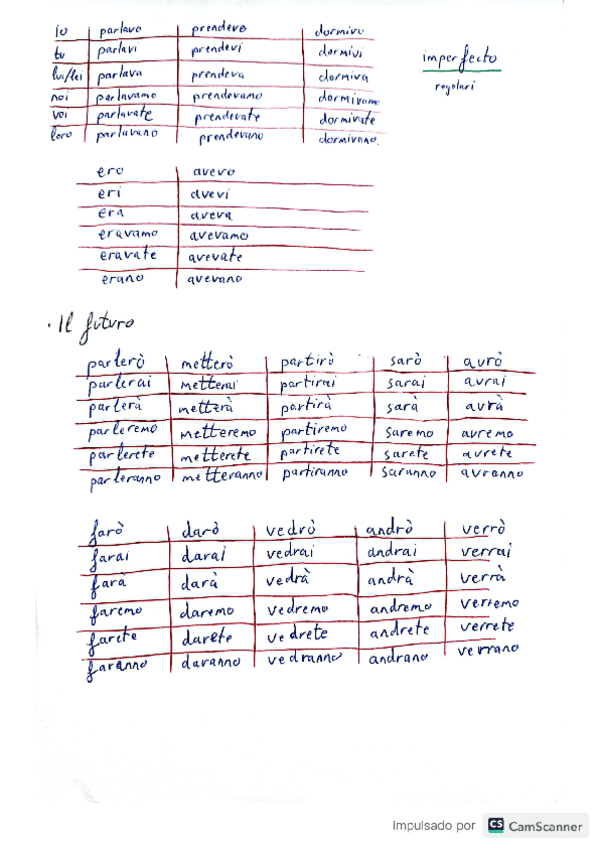 io parlavo prendevo dormivo
tu parlavi prendevi dormivi
lui/lei parlava prendeva dormiva
noi parlavamo prendevamo dormivamo
voi parlavate prendevate dormivate
loro parlavano prendevano dormivano.
imperfecto
regolari
ero avevo
eri avevi
era aveva
eravamo avevamo
eravate avevate
erano avevano
· Il futuro
parlerò metterò partirò sarò avrò
parlerai metterai partirai sarai avrai
parlerà metterà partirà sarà avrà
parleremo metteremo partiremo saremo avremo
parlerete metterete partirete sarete avrete
parleranno metteranno partiranno saranno avranno
farò darò vedrò andrò verrò
farai darai vedrai andrai verrai
farà darà vedrà andrà verrà
faremo daremo vedremo andremo verremo
farete darete vedrete andrete verrete
faranno daranno vedranno andrano verrano
Impulsado por CS CamScanner